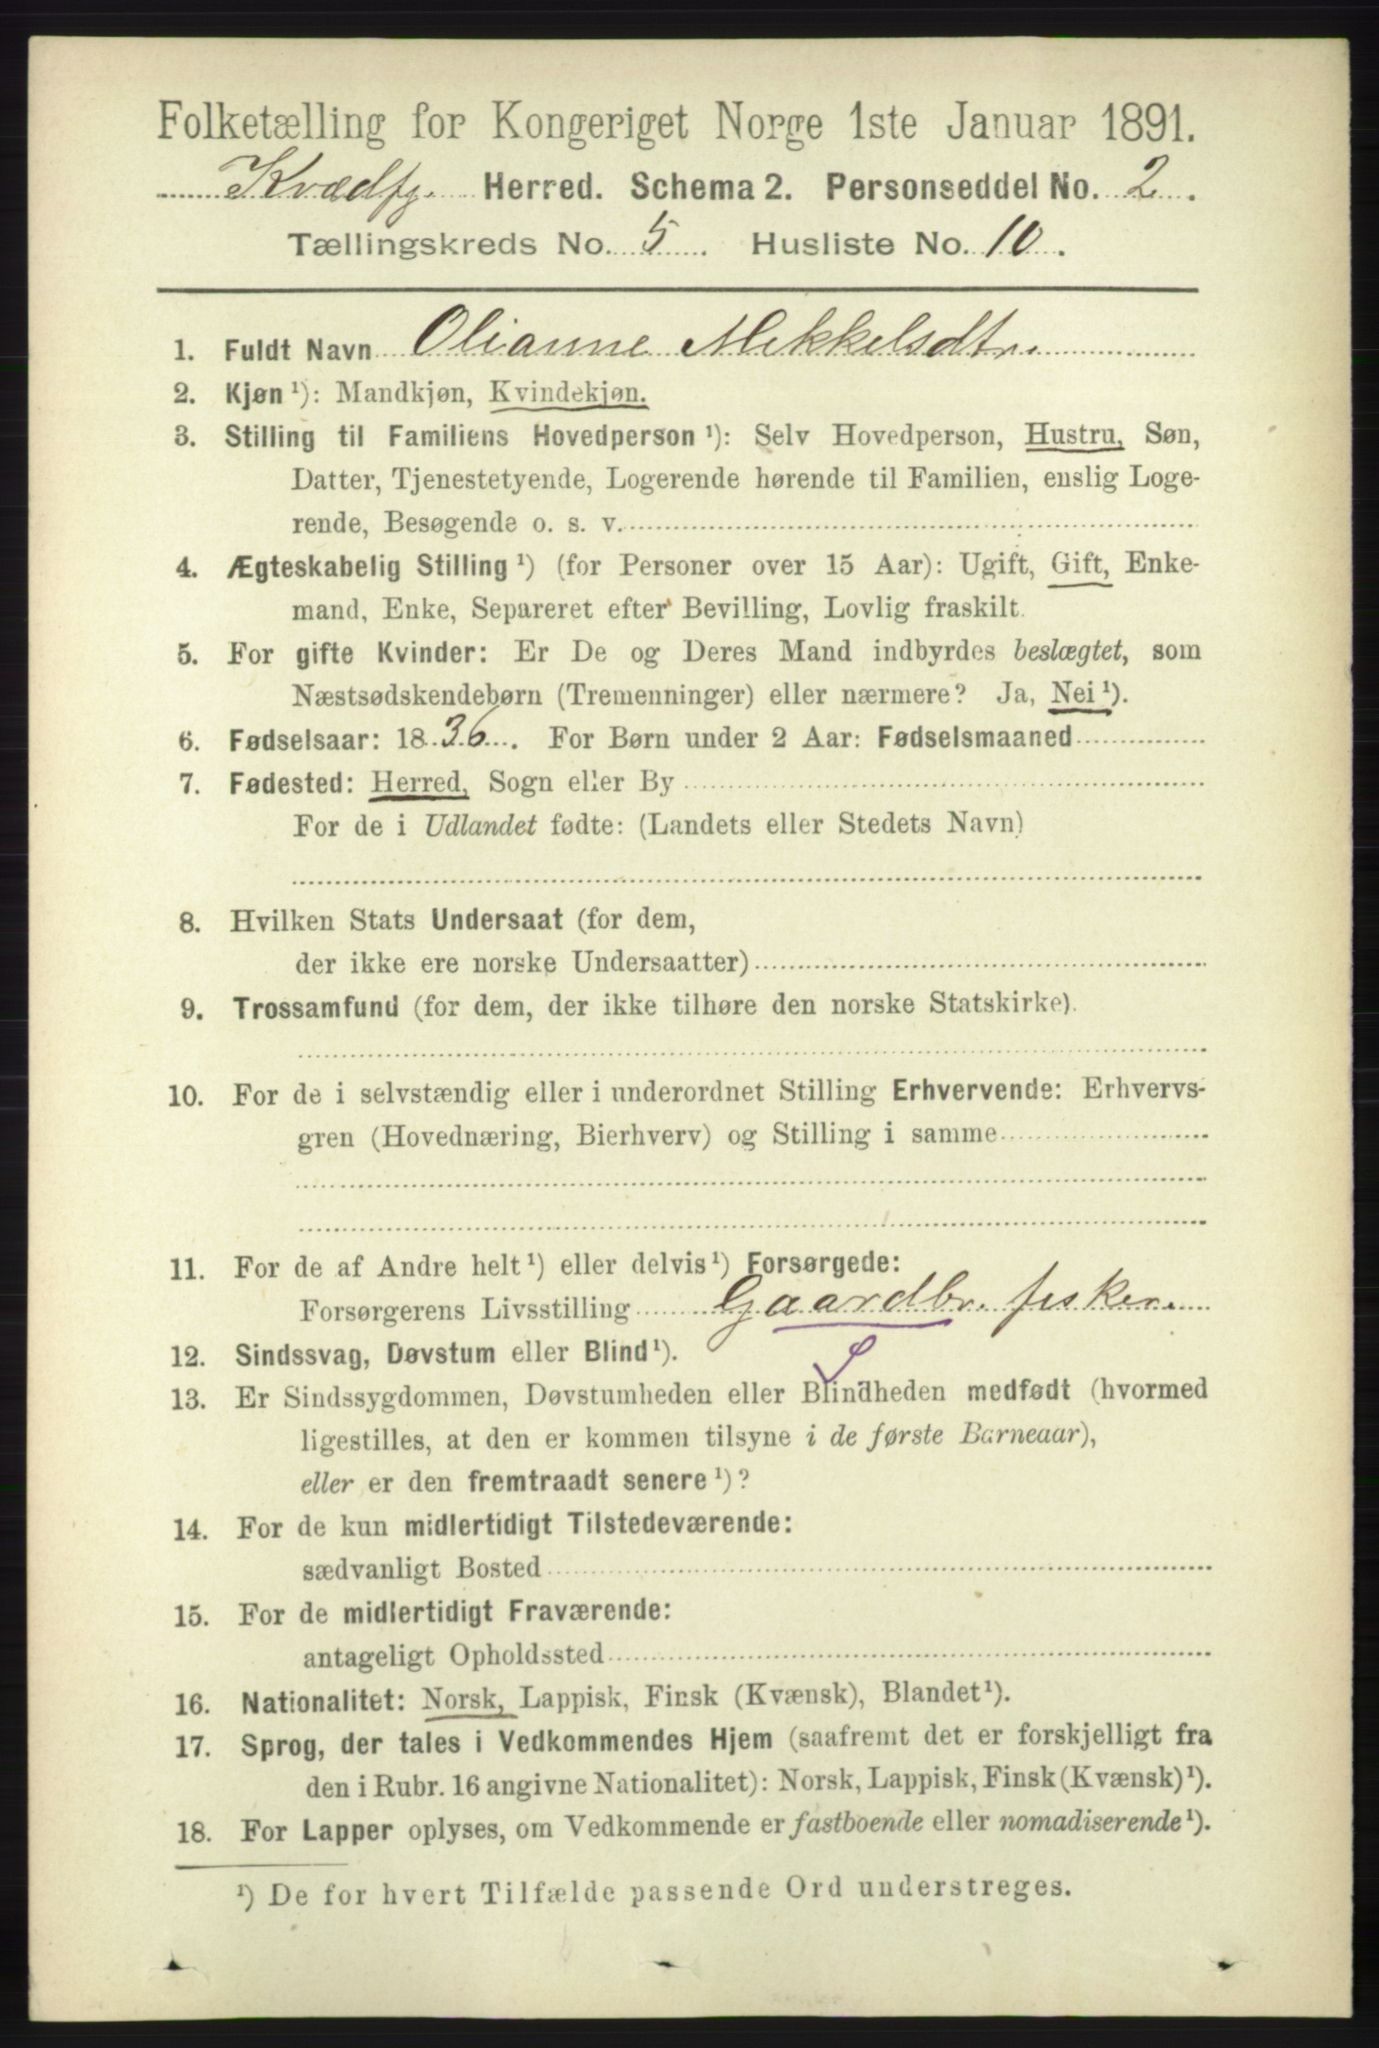 Folketælling for Kongeriget Norge 1ste Januar 1891.
Kvædfj. Herred. Schema 2. Personseddel No. 2.
Tællingskreds No. 5. Husliste No. 10.
1. Fuldt Navn Olianne Mekkelsdtr.
2. Kjøn ¹): Mandkjøn, Kvindekjøn.
3. Stilling til Familiens Hovedperson ¹): Selv Hovedperson, Hustru, Søn,
Datter, Tjenestetyende, Logerende hørende til Familien, enslig Loge-
rende, Besøgende o. s. v.
4. Ægteskabelig Stilling ¹) (for Personer over 15 Aar): Ugift, Gift, Enke-
mand, Enke, Separeret efter Bevilling, Lovlig fraskilt.
5. For gifte Kvinder: Er De og Deres Mand indbyrdes beslægtet, som
Næstsødskendebørn (Tremenninger) eller nærmere? Ja, Nei ¹).
6. Fødselsaar: 1836. For Børn under 2 Aar: Fødselsmaaned
7. Fødested: Herred, Sogn eller By
For de i Udlandet fødte: (Landets eller Stedets Navn)
8. Hvilken Stats Undersaat (for dem,
der ikke ere norske Undersaatter)
9. Trossamfund (for dem, der ikke tilhøre den norske Statskirke).
10. For de i selvstændig eller i underordnet Stilling Erhvervende: Erhvervs-
gren (Hovednæring, Bierhverv) og Stilling i samme
11. For de af Andre helt ¹) eller delvis ¹) Forsørgede:
Forsørgerens Livsstilling Gaardbr. fisker.
S
12. Sindssvag, Døvstum eller Blind ¹).
13. Er Sindssygdommen, Døvstumheden eller Blindheden medfødt (hvormed
ligestilles, at den er kommen tilsyne i de første Barneaar),
eller er den fremtraadt senere ¹)?
14. For de kun midlertidigt Tilstedeværende:
sædvanligt Bosted
15. For de midlertidigt Fraværende:
antageligt Opholdssted
16. Nationalitet: Norsk, Lappisk, Finsk (Kvænsk), Blandet ¹).
17. Sprog, der tales i Vedkommendes Hjem (saafremt det er forskjelligt fra
den i Rubr. 16 angivne Nationalitet): Norsk, Lappisk, Finsk (Kvænsk) ¹).
18. For Lapper oplyses, om Vedkommende er fastboende eller nomadiserende ¹).
¹) De for hvert Tilfælde passende Ord understreges.